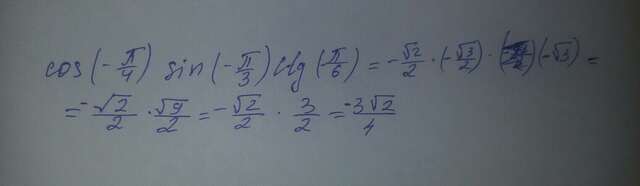 cos(-π/4) sin(-π/3) ctg(-π/6) = -√2/2 · (-√3/2) · (-√3) =
= -√2/2 · √9/2 = -√2/2 · 3/2 = -3√2/4